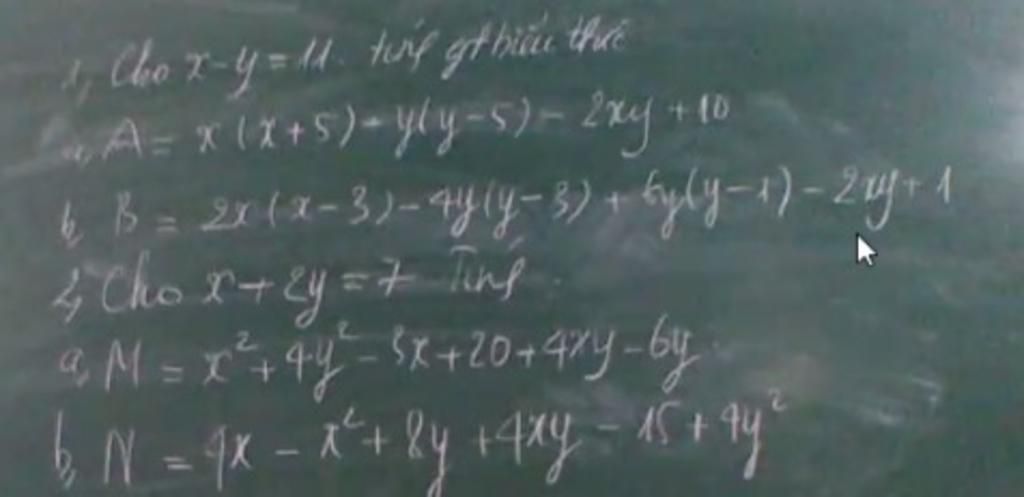 1, Cho x - y = 11. tính gt biểu thức
a, A = x(x+5) + y(y-5) - 2xy + 10
b, B = 2x(x-3) - 4y(y-3) + 6y(y-1) - 2xy + 1
2, Cho x + 2y = 7 Tính
a, M = x² + 4y² - 3x + 20 + 4xy - 6y
b, N = 4x - x² + 8y + 4xy - 15 + 4y²